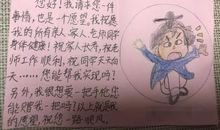 您好！我请求您一件
事情，也是一个愿望。我祝愿
我的所有亲人、家人老师同学
身体健康！祝家人大寿，祝老
师工作顺利，祝同学天天向
天……您能帮我实现吗？
另外，我很想要一把手枪您
能赐我一把吗？以上就是我
的愿望，祝您一路顺风。